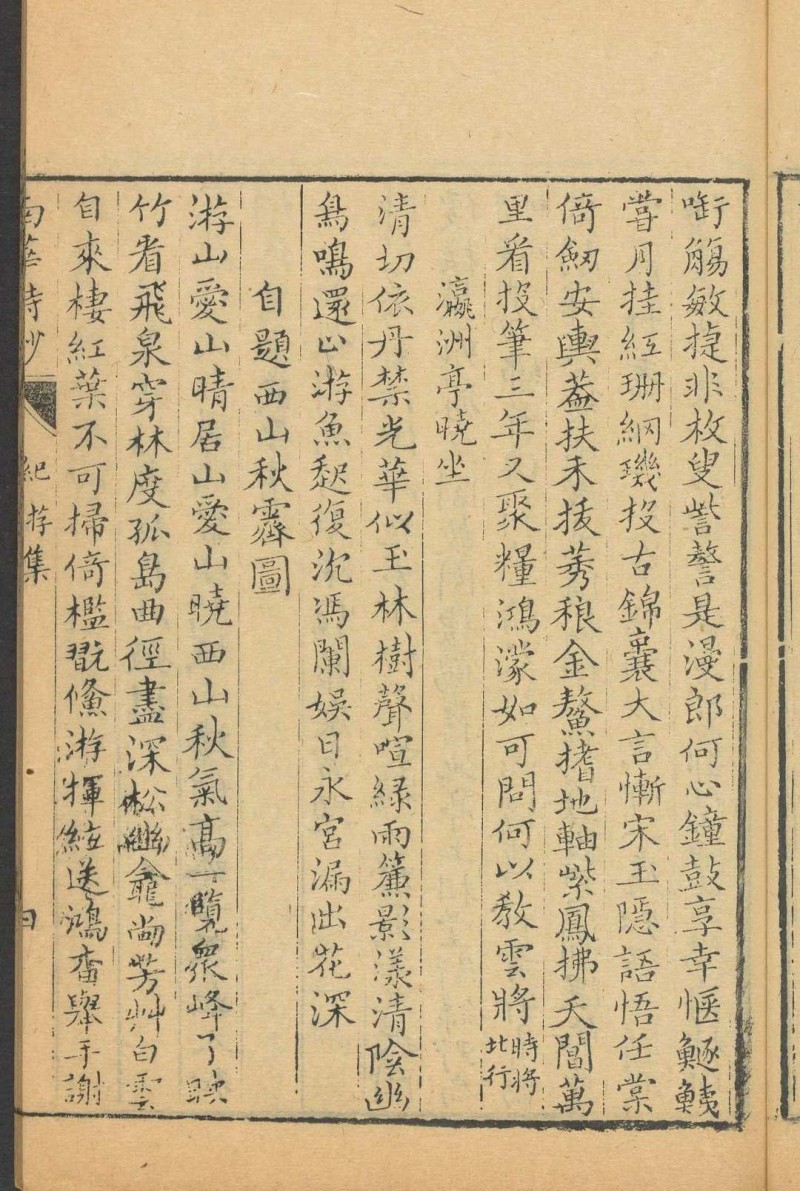 啣觴敏捷非枚叟訾謷是漫郎何心鐘鼓享幸愜鱁鮧
嘗月挂紅珊網璣投古錦囊大言慚宋玉隱語悟任棠
倚劒安輿葢扶禾拔莠稂金鰲搘地軸紫鳳拂天閶萬
里看投筆三年又聚糧鴻濛如可問何以教雲將時將北行
瀛洲亭曉坐
清切依丹禁光華似玉林樹聲喧綠雨簾影漾清陰幽
鳥鳴還止游魚起復沉馮闌娛日永宮漏出花深
自題西山秋霽圖
游山愛山晴居山愛山曉西山秋氣高一覽眾峰了映
竹看飛泉穿林度孤島曲徑盡深松幽龕尚芳艸白雲
自來棲紅葉不可掃倚檻翫鯈游揮絃送鴻奮舉手謝
南華詩鈔
紀游集
四